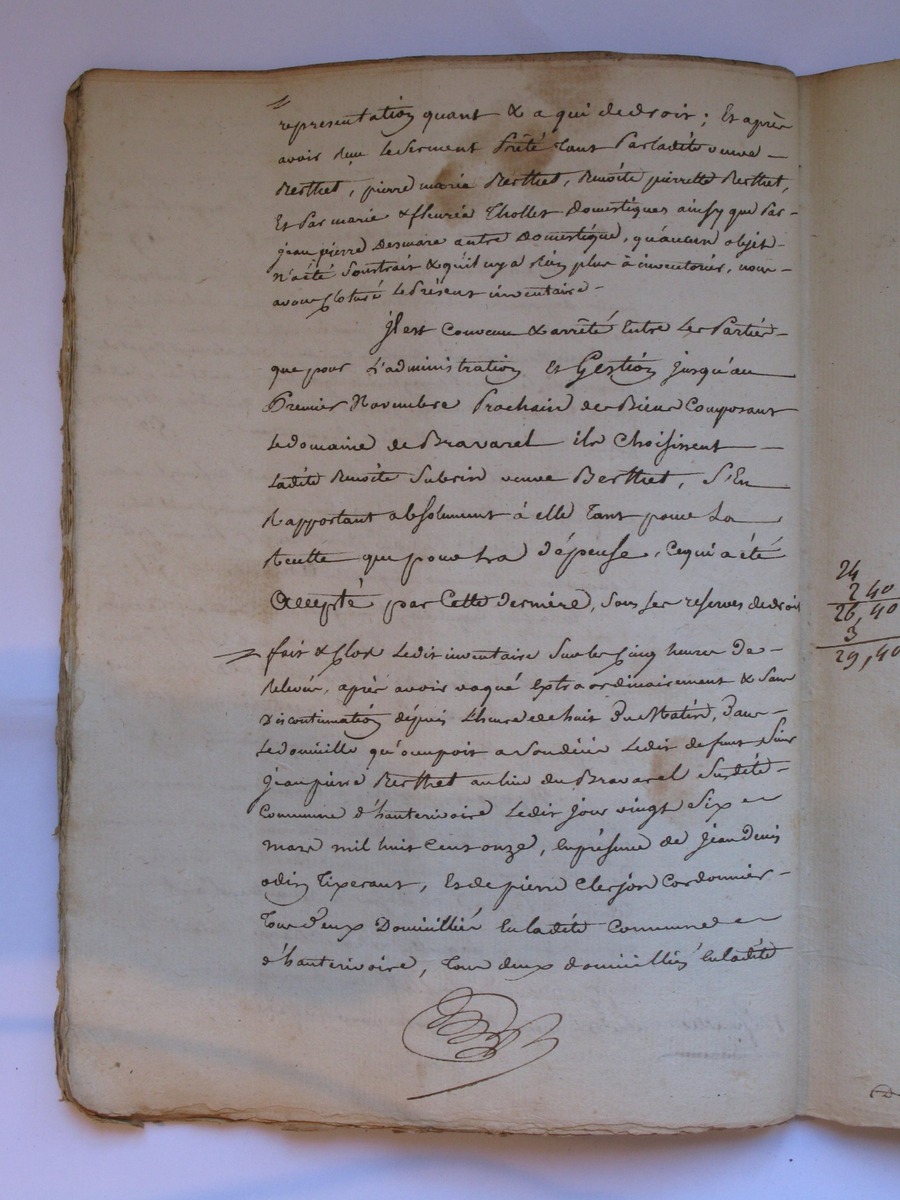 representation quant & a qui de droit ; Et après
avoir reçu le serment Prêté tant Par ladite veuve
Berthet, pierre marie Berthet, Benoîte pierrette Berthet,
Et Par marie & fleurie Thollet Domestiques ainsy que Par
jean pierre Desmare autre Domestique, qu'aucun objet
N'a été soustrait & qu'il ny a Rien plus à inventorier, nous
avons Cloturé le Présent inventaire.
jl est Convenu & arrêté Entre les Parties
que pour L'administration et Gestion jusqu'au
Premier Novembre Prochain des Biens Composant
le domaine de Bravarel ils Choisissent
Ladite Benoîte Subrin veuve Berthet, S'En
Rapportant absolument à elle Tant pour La
Recette que pour La Dépense, Ce qui a été
Accepté par Cette Dernière, sous ses reserves de droit
fait & Clos Ledit inventaire Sur les Cinq heures De
Relevée, après avoir vaqué Extraordinairement & Sans
Discontinuation dépuis Lheure de huit Du Matin, Dans
Le domicille qu'occupoit a son décès Ledit defunt Sieur
jean pierre Berthet au lieu du Bravarel Susdite
Commune d'hauterivoire Ledit jour vingt Six
mars mil huit Cent onze, En présence de jean Denis
odin Tixerant, Et de pierre Clerjon Cordonnier
Tous d'eux Domicilliés En ladite Commune
d'hauterivoire, Tous deux domicilliés En ladite
24
2 40
26,40
3
29,40